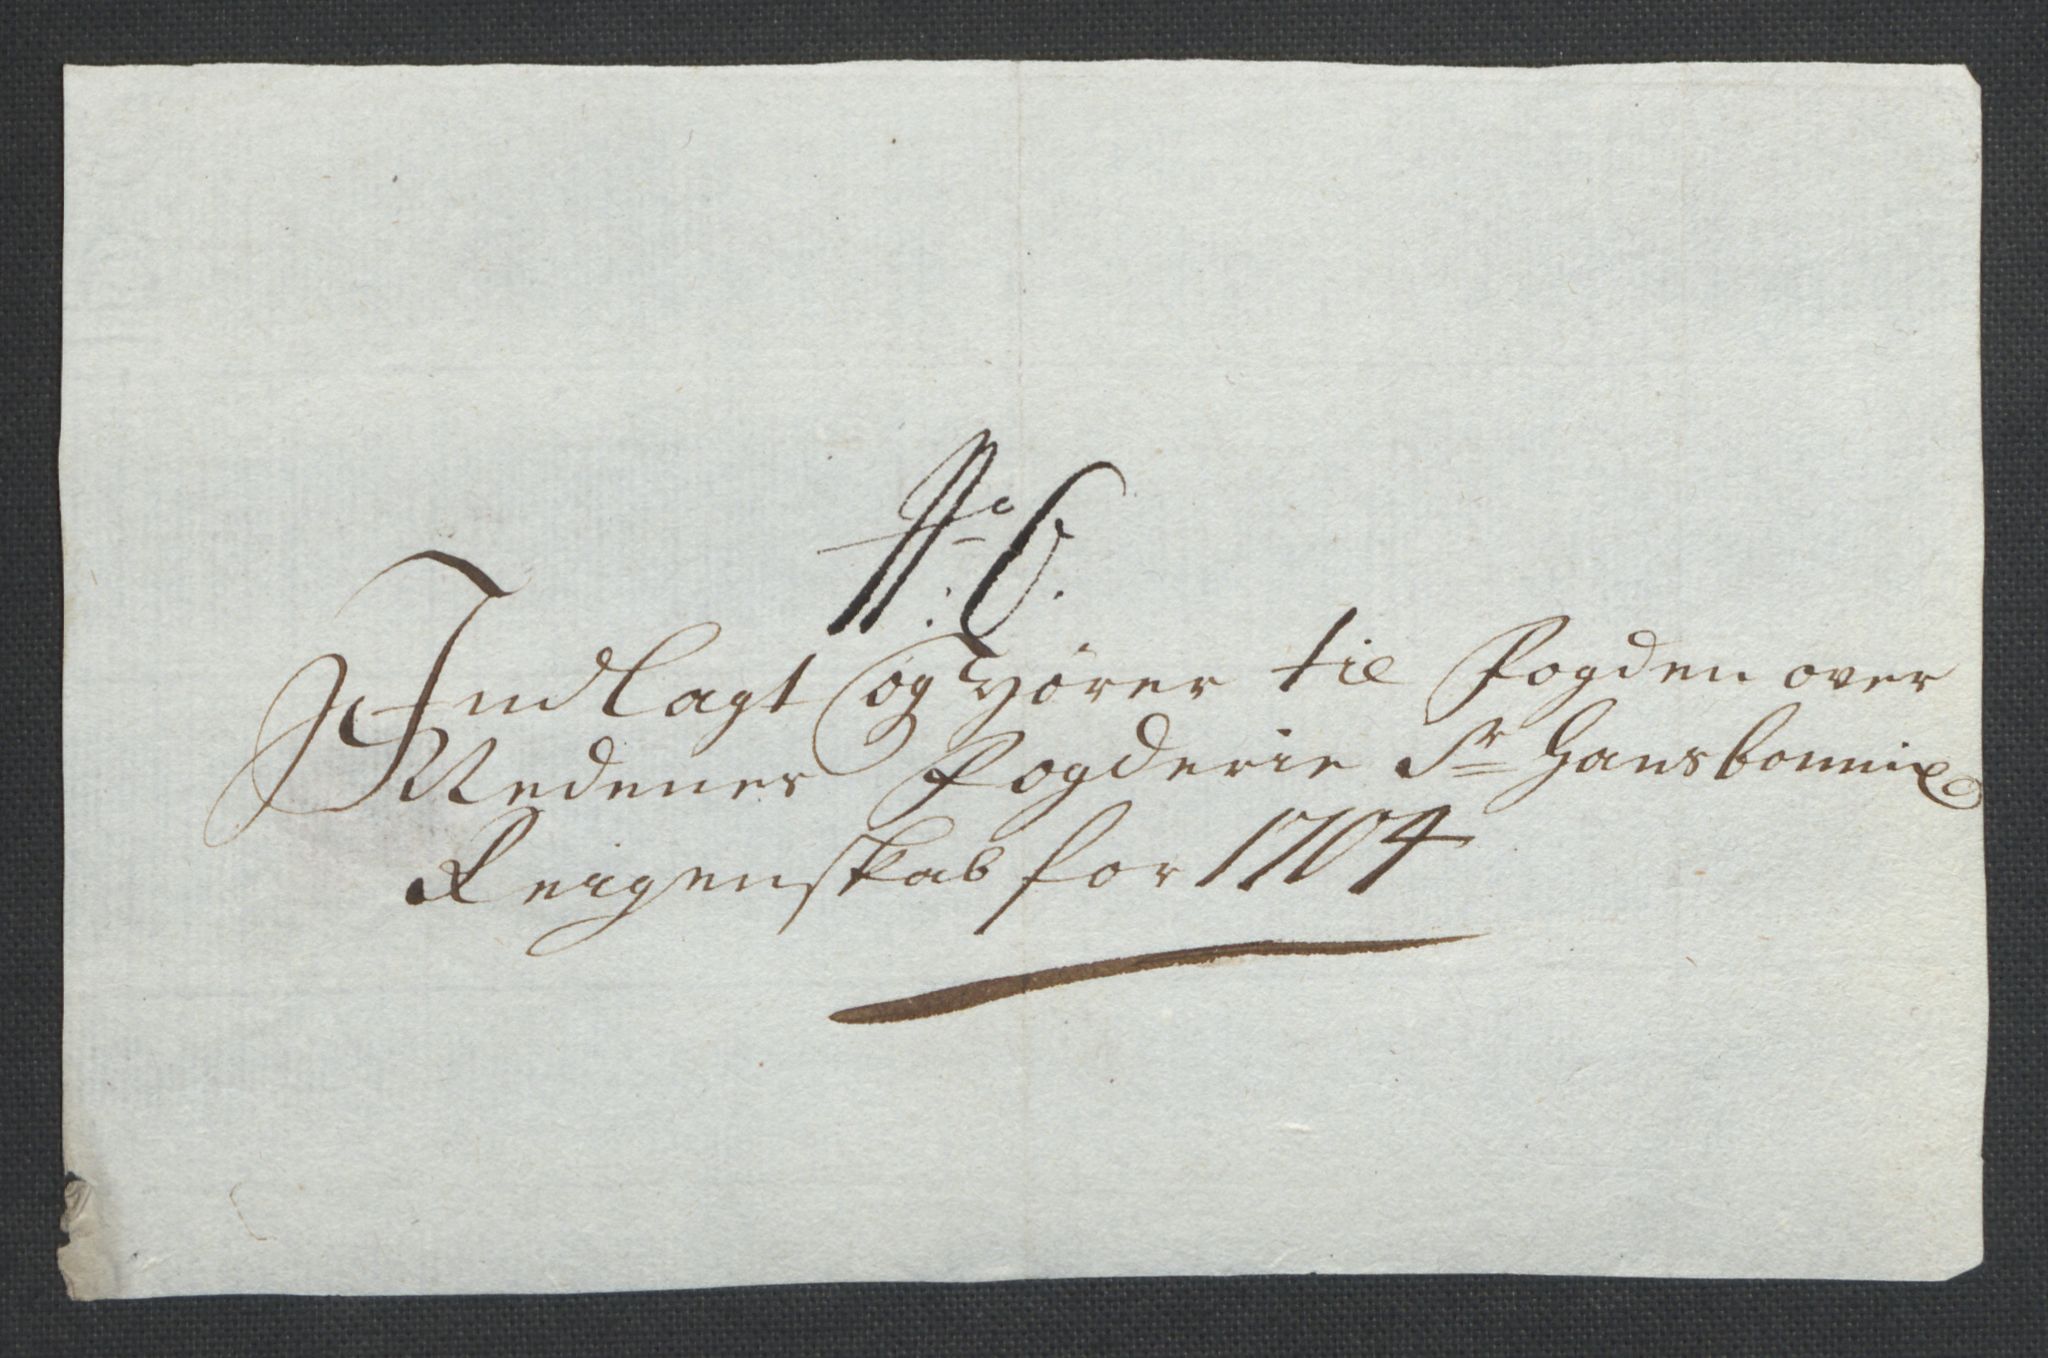 No. 6.
Indlagt og Hører til Fogden over
Nedenes Fogderie Sr Hans bonnix
Reigenskab for 1704